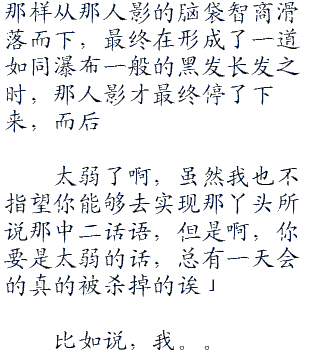 那样从那人影的脑袋智商滑
落而下，最终在形成了一道
如同瀑布一般的黑发长发之
时，那人影才最终停了下
来，而后
太弱了啊，虽然我也不
指望你能够去实现那丫头所
说那中二话语，但是啊，你
要是太弱的话，总有一天会
的真的被杀掉的诶」
比如说，我。。